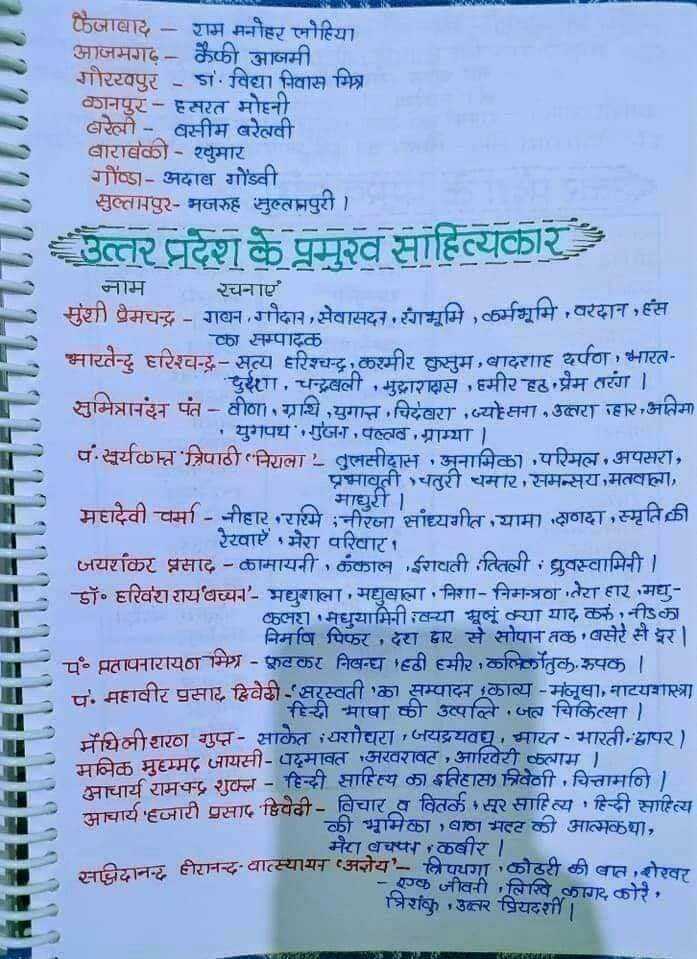 फैजाबाद - राम मनोहर लोहिया
आजमगढ़ - कैफी आजमी
गोरखपुर - डा. विद्या निवास मिश्र
कानपुर - हसरत मोहनी
बरेली - वसीम बरेलवी
बाराबंकी - खुमार
गोण्डा - अदाब गोंडवी
सुल्तानपुर - मजरुह सुल्तानपुरी ।
उत्तर प्रदेश के प्रमुख साहित्यकार
नाम रचनाएं
मुंशी प्रेमचन्द्र - गबन, गोदान, सेवासदन, रंगभूमि, कर्मभूमि, वरदान, हंस
का सम्पादक
भारतेन्दु हरिश्चन्द्र - सत्य हरिश्चन्द्र, कश्मीर कुसुम, बादशाह दर्पण, भारत-
दुर्दशा, चन्द्रबली, मुद्राराक्षस, हमीर हठ, प्रेम तरंग ।
सुमित्रानंदन पंत - वीणा, ग्रंथि, युगान्त, चिदंबरा, ज्योत्सना, उत्तरा, हार, अतिमा
, युगपथ, गुंजन, पल्लव, ग्राम्या ।
पं. सूर्यकान्त त्रिपाठी 'निराला' - तुलसीदास, अनामिका, परिमल, अपसरा,
प्रभावती, चतुरी चमार, समन्सय, मतवाला,
माधुरी ।
महादेवी वर्मा - नीहार, रश्मि, नीरजा सांध्यगीत, यामा, क्षणदा, स्मृति की
रेखाऐं, मेरा परिवार,
जयशंकर प्रसाद - कामायनी, कंकाल, ईरावती, तितली, ध्रुवस्वामिनी ।
डॉ. हरिवंश राय 'बच्चन' - मधुशाला, मधुबाला, निशा-निमन्त्रण, तेरा हार, मधु-
कलश, मधुयामिनी, क्या भूलूं क्या याद करूं, नीड़ का
निर्माण फिर, दश द्वार से सोपान तक, बसेरे से दूर ।
पं. प्रतापनारायण मिश्र - फुटकर निबन्ध, हठी हमीर, कलिकौतुक, रूपक ।
पं. महावीर प्रसाद द्विवेदी - 'सरस्वती' का सम्पादन, काव्य - मंजूषा, नाट्यशास्त्र
हिन्दी भाषा की उत्पत्ति, जल चिकित्सा ।
मैथिलीशरण गुप्त - साकेत, यशोधरा, जयद्रयवध, भारत - भारती, द्वापर ।
मलिक मुहम्मद जायसी - पद्मावत, अखरावट, आखिरी कलाम ।
आचार्य रामचन्द्र शुक्ल - हिन्दी साहित्य का इतिहास, त्रिवेणी, चिन्तामणि ।
आचार्य हजारी प्रसाद द्विवेदी - विचार व वितर्क, सूर साहित्य, हिन्दी साहित्य
की भूमिका, बाण भट्ट की आत्मकथा,
मेरा बचपन, कबीर ।
सच्चिदानन्द हीरानन्द - वात्स्यायन 'अज्ञेय' - त्रिपथगा, कोठरी की बात, शेखर
- एक जीवनी, लिखि कागद कोरे,
त्रिशंकु, उत्तर प्रियदर्शी ।